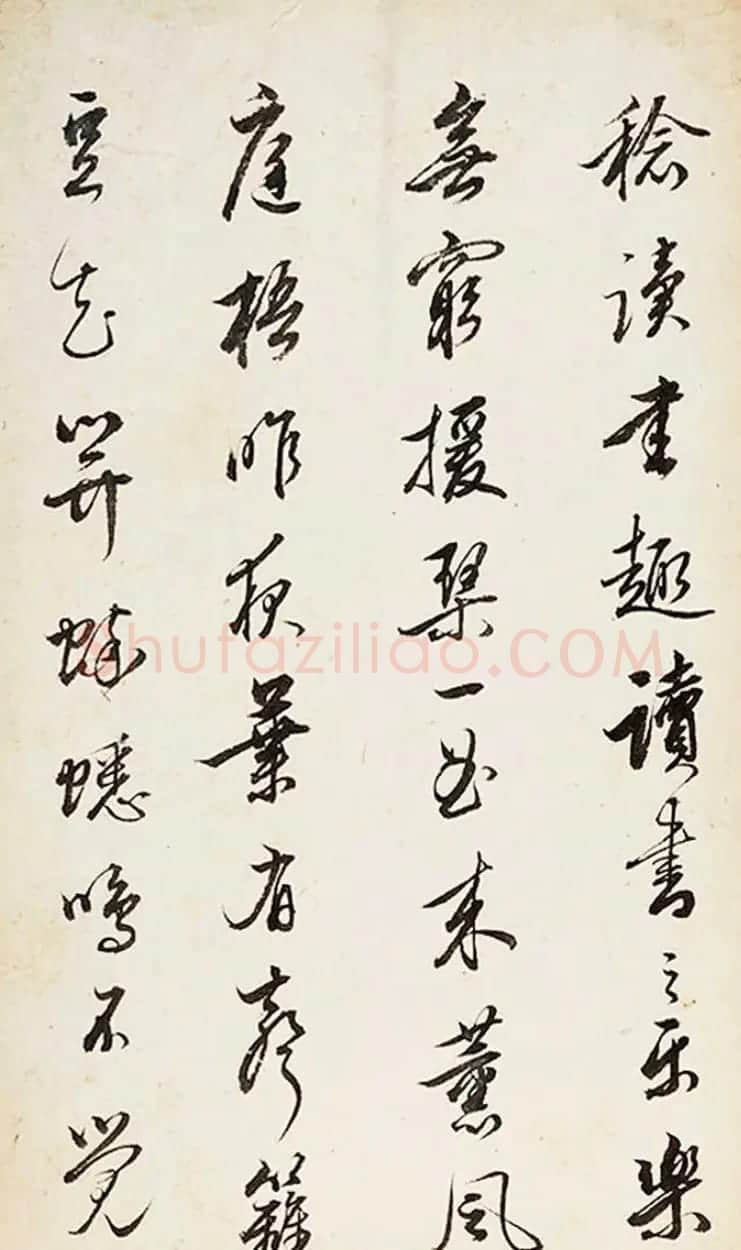 稔讀書趣讀書之樂樂
無窮援琴一曲来薰風
庭梧昨夜葉有聲籬
豆花開蟀蟋鳴不覺
Shufaziliao.COM